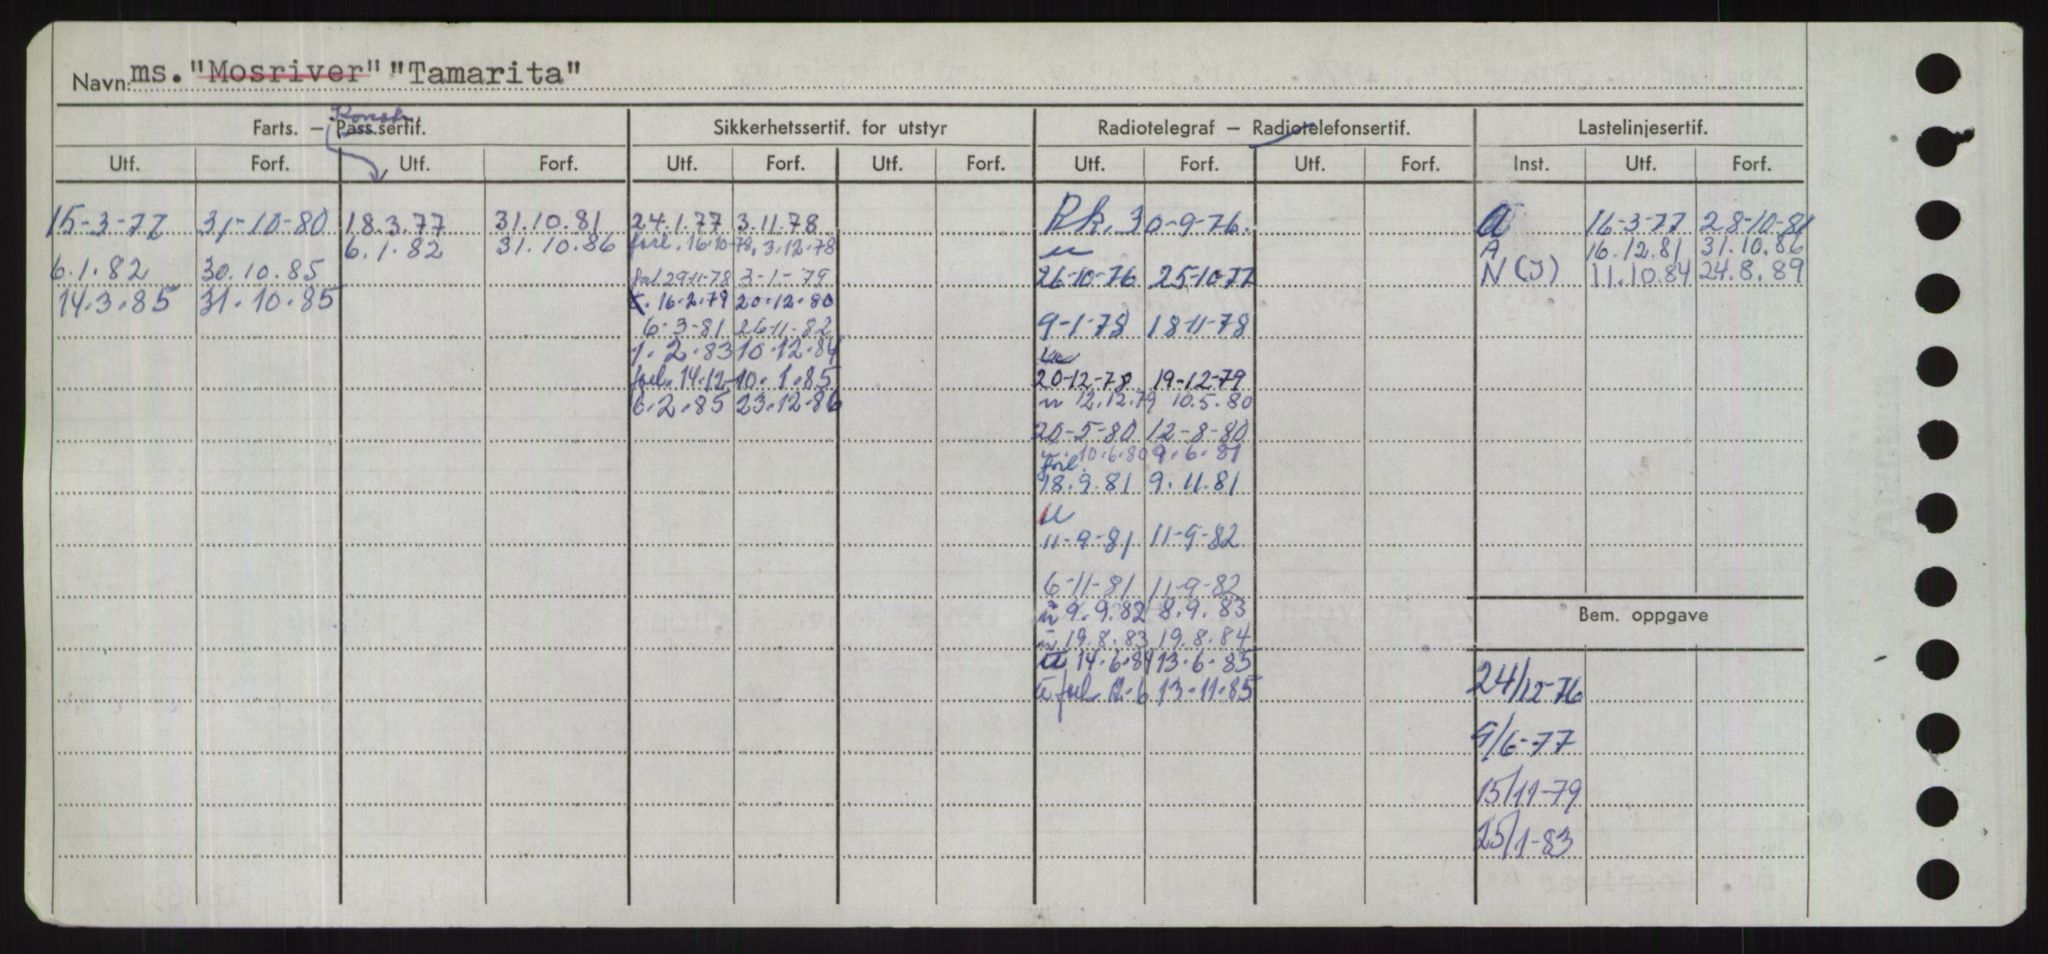 Navn: ms. "Mosriver" "Tamarita"
Konstr.
Farts. – Pass.sertif. Sikkerhetssertif. for utstyr Radiotelegraf – Radiotelefonsertif. Lastelinjesertif.
Utf. Forf. Utf. Forf. Utf. Forf. Utf. Forf. Utf. Forf. Utf. Forf. Inst. Utf. Forf.
15-3-77 31-10-80 18.3.77 31.10.81 24.1.77 3.11.78 Rk. 30-9-76. a 16-3-77 28-10-81
6.1.82 31.10.86 forl. 16-10-78, 3.12.78 u A 16.12.81 31.10.86
6.1.82 30.10.85 forl 29-11-78 3-1-79 26-10-76 25-10-77 N (J) 11.10.84 24.8.89
14.3.85 31.10.85 16.2.79 20.12.80
6-3-81 26-11-82 9-1-78 18-11-78
1.2.83 10.12.84 u
forl. 14.12 10.1.85 20-12-78 19-12-79
6.2.85 23.12.86 u 12.12.79 10.5.80
20-5-80 12-8-80
u 10.6.80 9.6.81
forl.
18.9.81 9.11.81
u
11-9-81 11-9-82
6-11-81 11-9-82
u 9.9.82 8.9.83
Bem. oppgave
u 19.8.83 19.8.84
u 14.6.84 13.6.85
u forl. 12.6 13.11.85 24/12-76
9/6-77
15/11-79
25/1-83